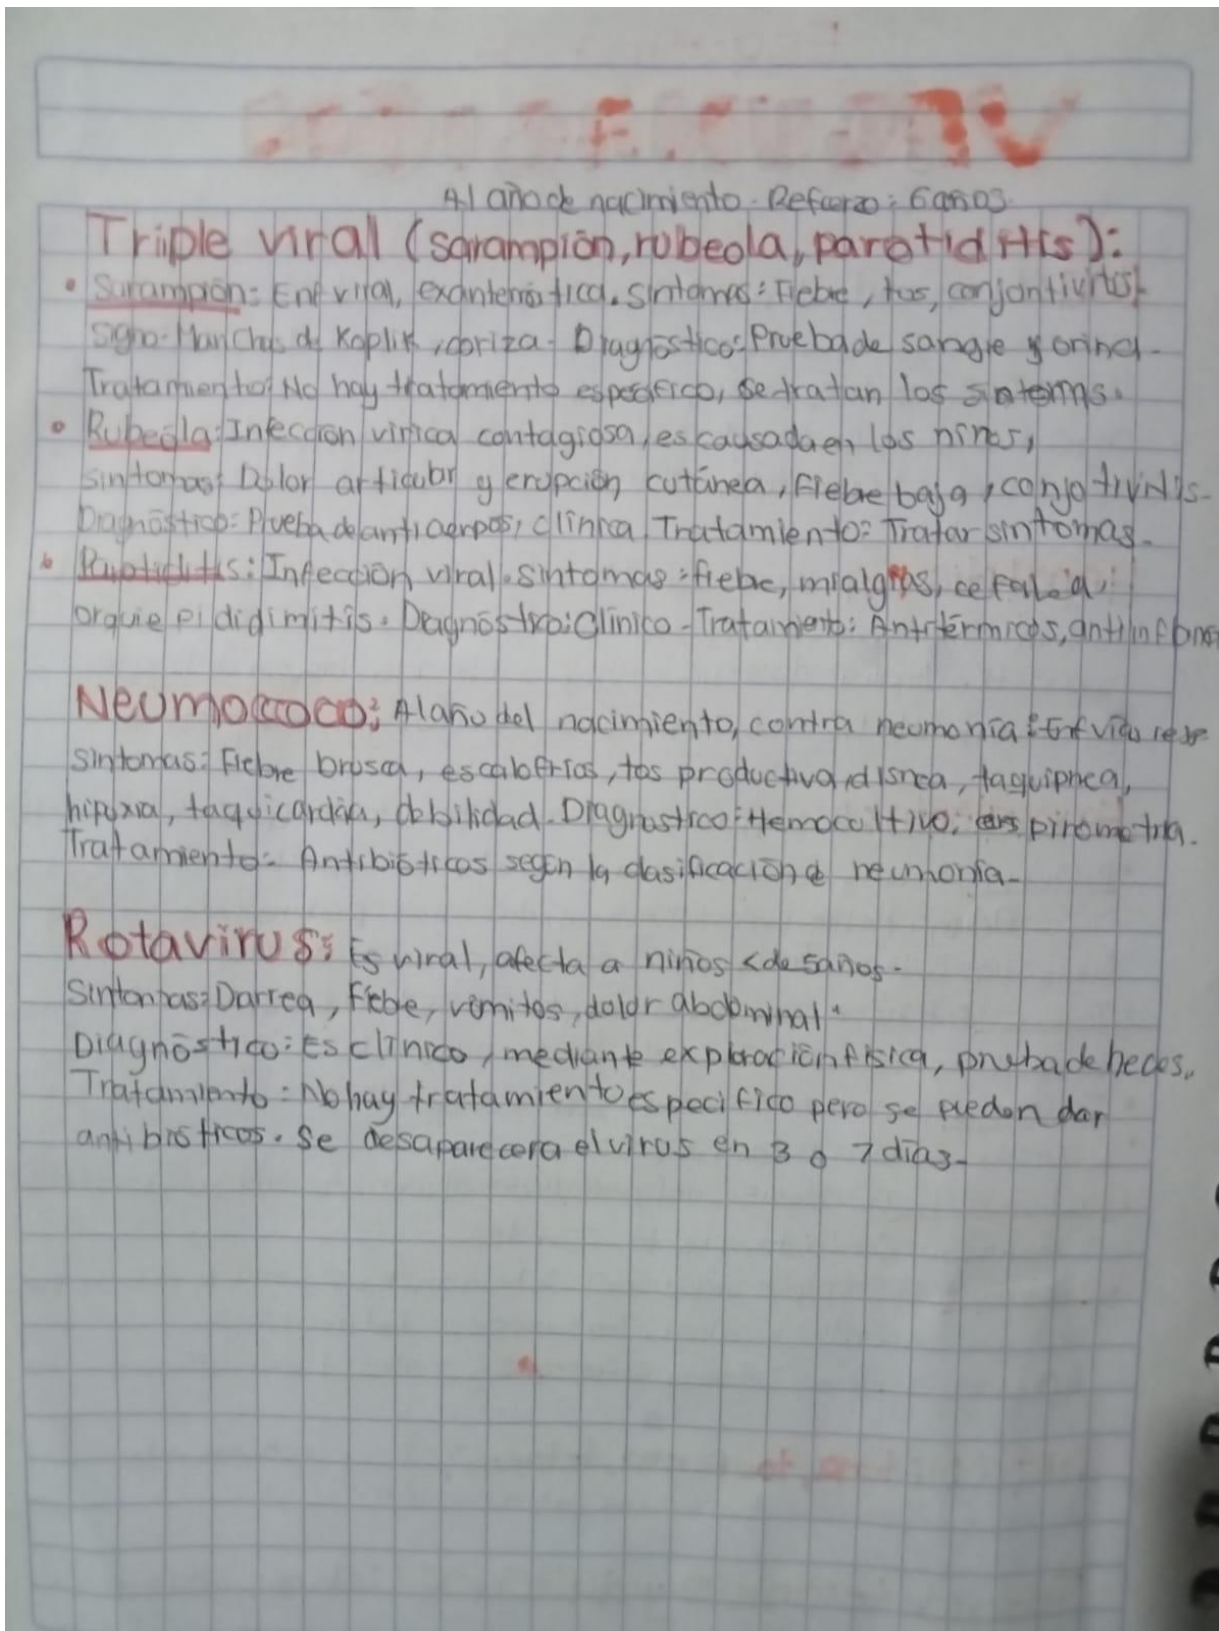 Al año de nacimiento. Refuerzo: 6 años.
Triple viral (sarampión, rubeola, parotiditis):
• Sarampión: Enf viral, exantemática. Síntomas: Fiebre, tos, conjontivitis,
Signo: Manchas de Koplik, coriza. Diagnóstico: Prueba de sangre y orina.
Tratamiento: No hay tratamiento específico, se tratan los
• Rubeola: Infección vírica contagiosa, es causada en los niños,
síntomas: Dolor articular y erupción cutánea, Fiebre baja, conjotivitis.
Diagnóstico: Prueba de anticuerpos, clínica Tratamiento: Tratar síntomas.
• Parotiditis: Infección viral. Síntomas: fiebre, mialgias, cefalea,
orquiepididimitis. Diagnóstico: Clínico. Tratamiento: Antitérmicos,
Neumococo: Al año del nacimiento, contra neumonía: Enf
Síntomas: Fiebre brusca, escalofríos, tos productiva, disnea, taquipnea,
hipoxia, taquicardia, debilidad. Diagnostico: Hemocultivo,
Tratamiento: Antibióticos según la clasificación de neumonía.
Rotavirus: Es viral, afecta a niños < de 5 años.
Síntomas: Darrea, Fiebe, vómitos, dolor abdominal.
Diagnóstico: Es clínico, mediante exploración física, prueba de heces.
Tratamiento: No hay tratamiento específico pero se pueden dar
antibióticos. Se desaparecera el virus en 3 o 7 días.